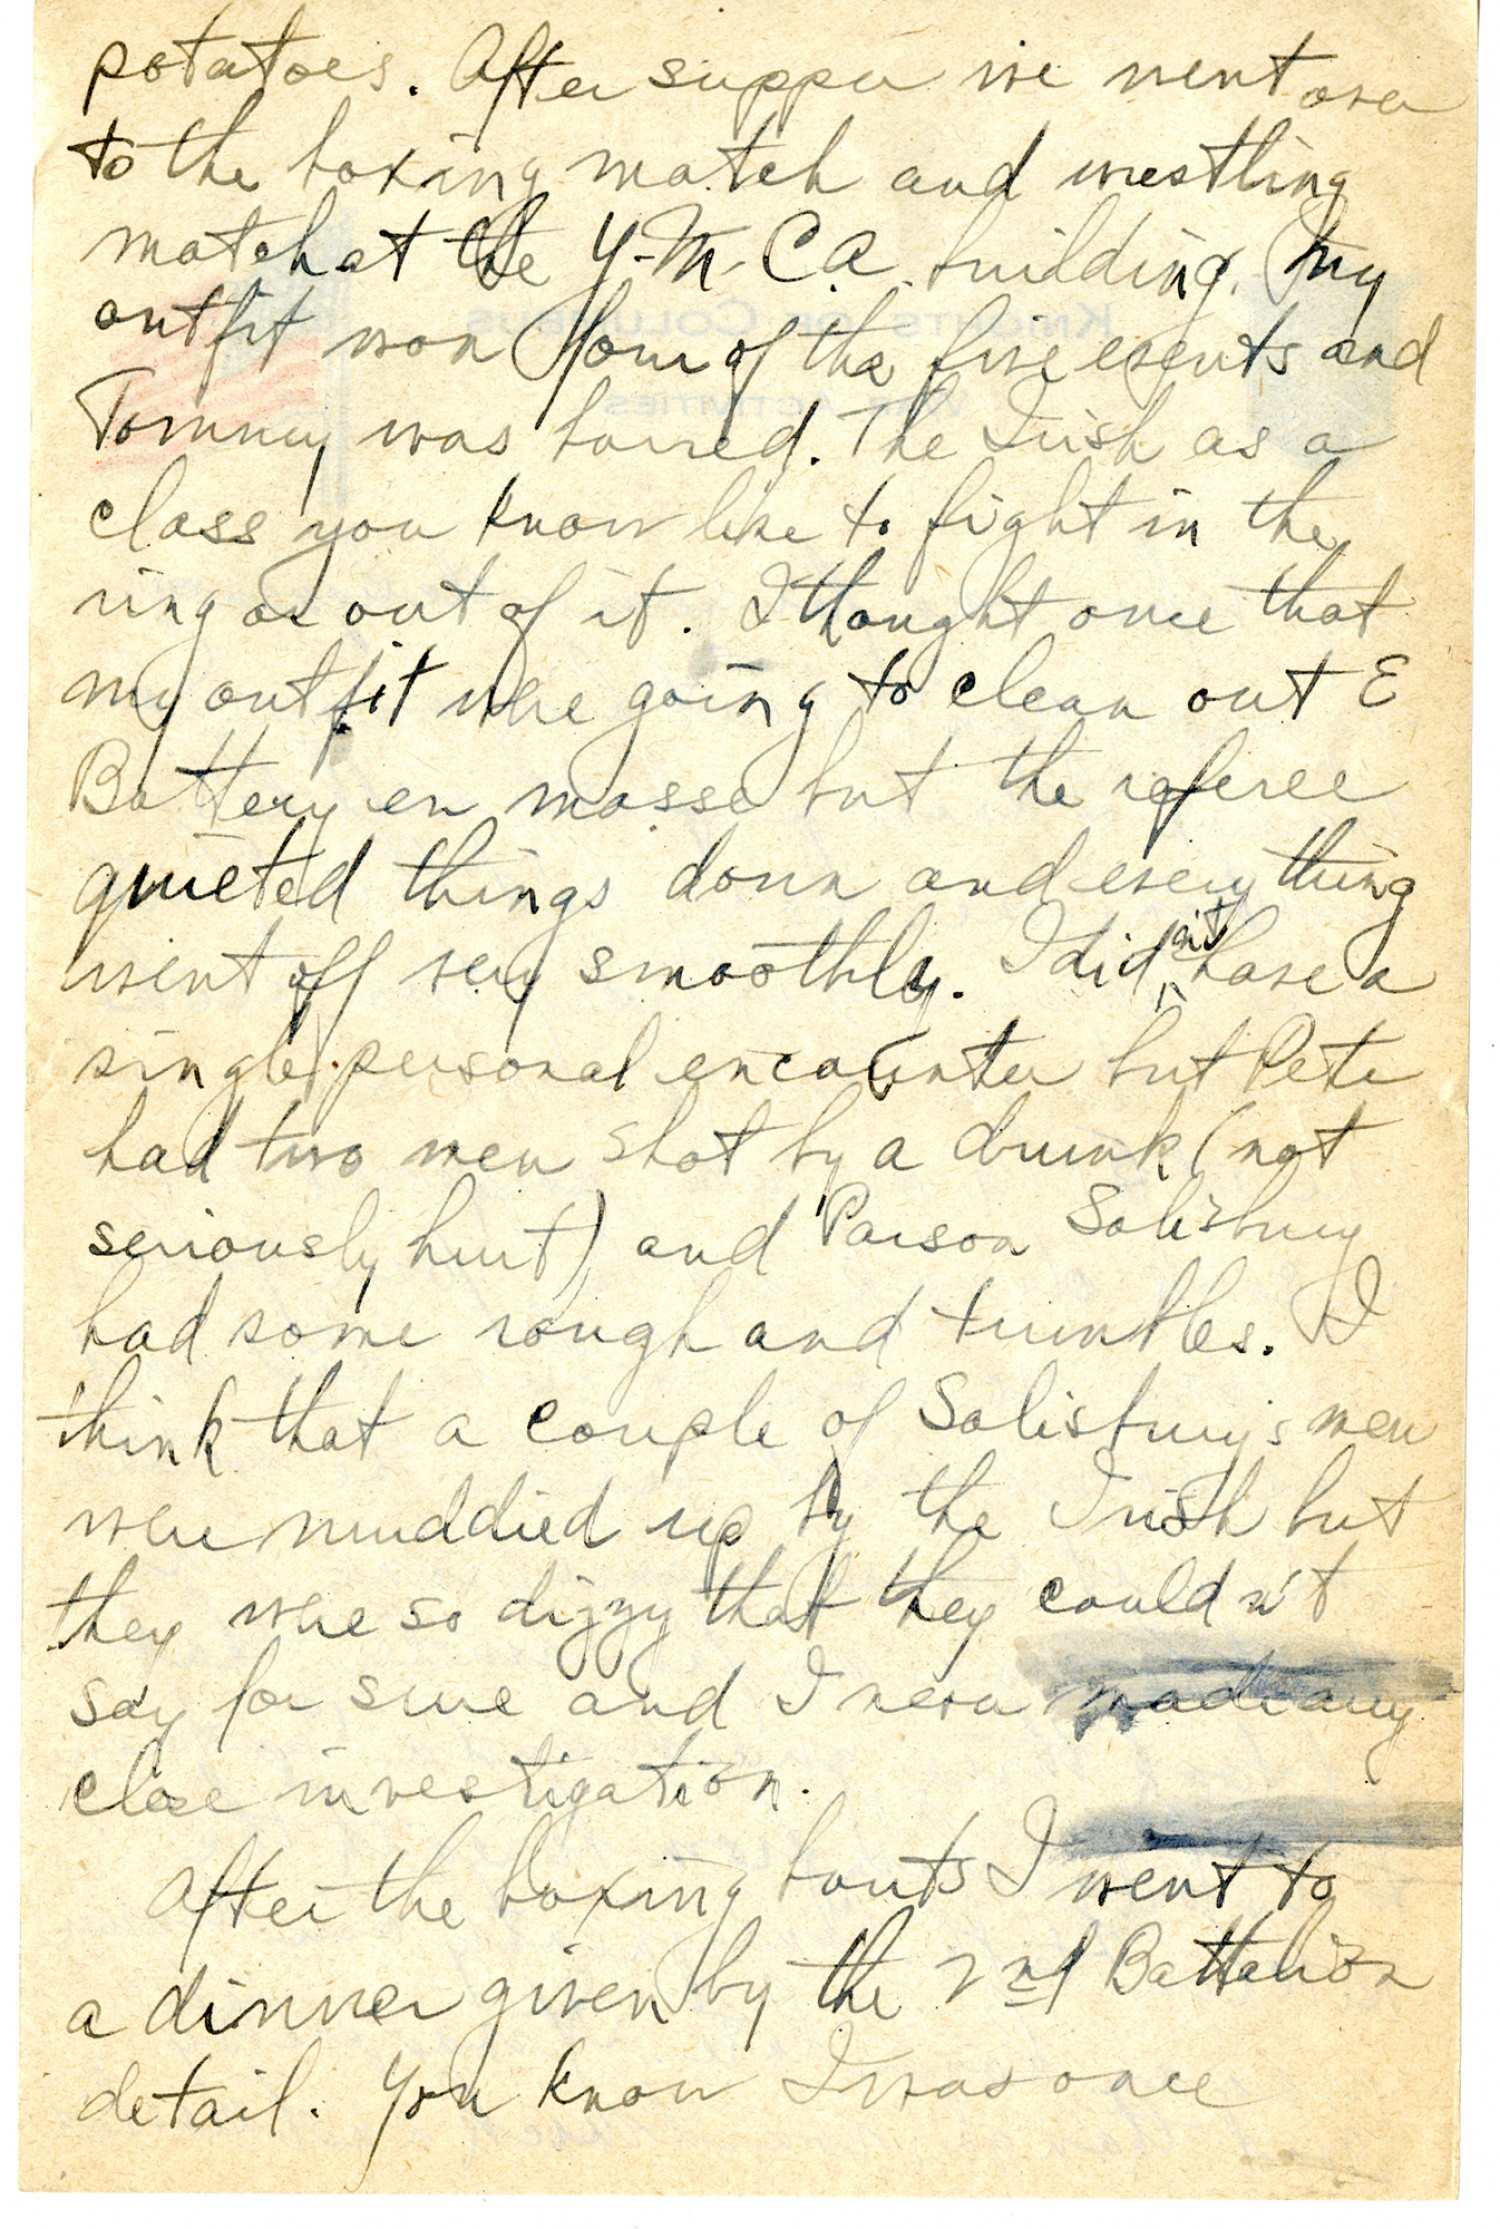 potatoes. After supper we went over
to the boxing match and wrestling
match at the Y.M.C.A. building. My
outfit won four of the five events and
Tommy was barred. The Irish as a
class you know like to fight in the
ring or out of it. I thought once that
my outfit were going to clean out E
Battery en masse but the referee
quieted things down and every thing
went off very smoothly. I did n't have a
single personal encounter but Pete
had two men shot by a drunk (not
seriously hurt) and Parson Salisbury
had some rough and tumbles. I
think that a couple of Salisbury's men
were muddied up by the Irish but
they were so dizzy that they couldn't
say for sure and I never made any
close investigation.
After the boxing bouts I went to
a dinner given by the 2nd Battalion
detail. You know I was once
KNIGHTS OF COLUMBUS
WAR ACTIVITIES